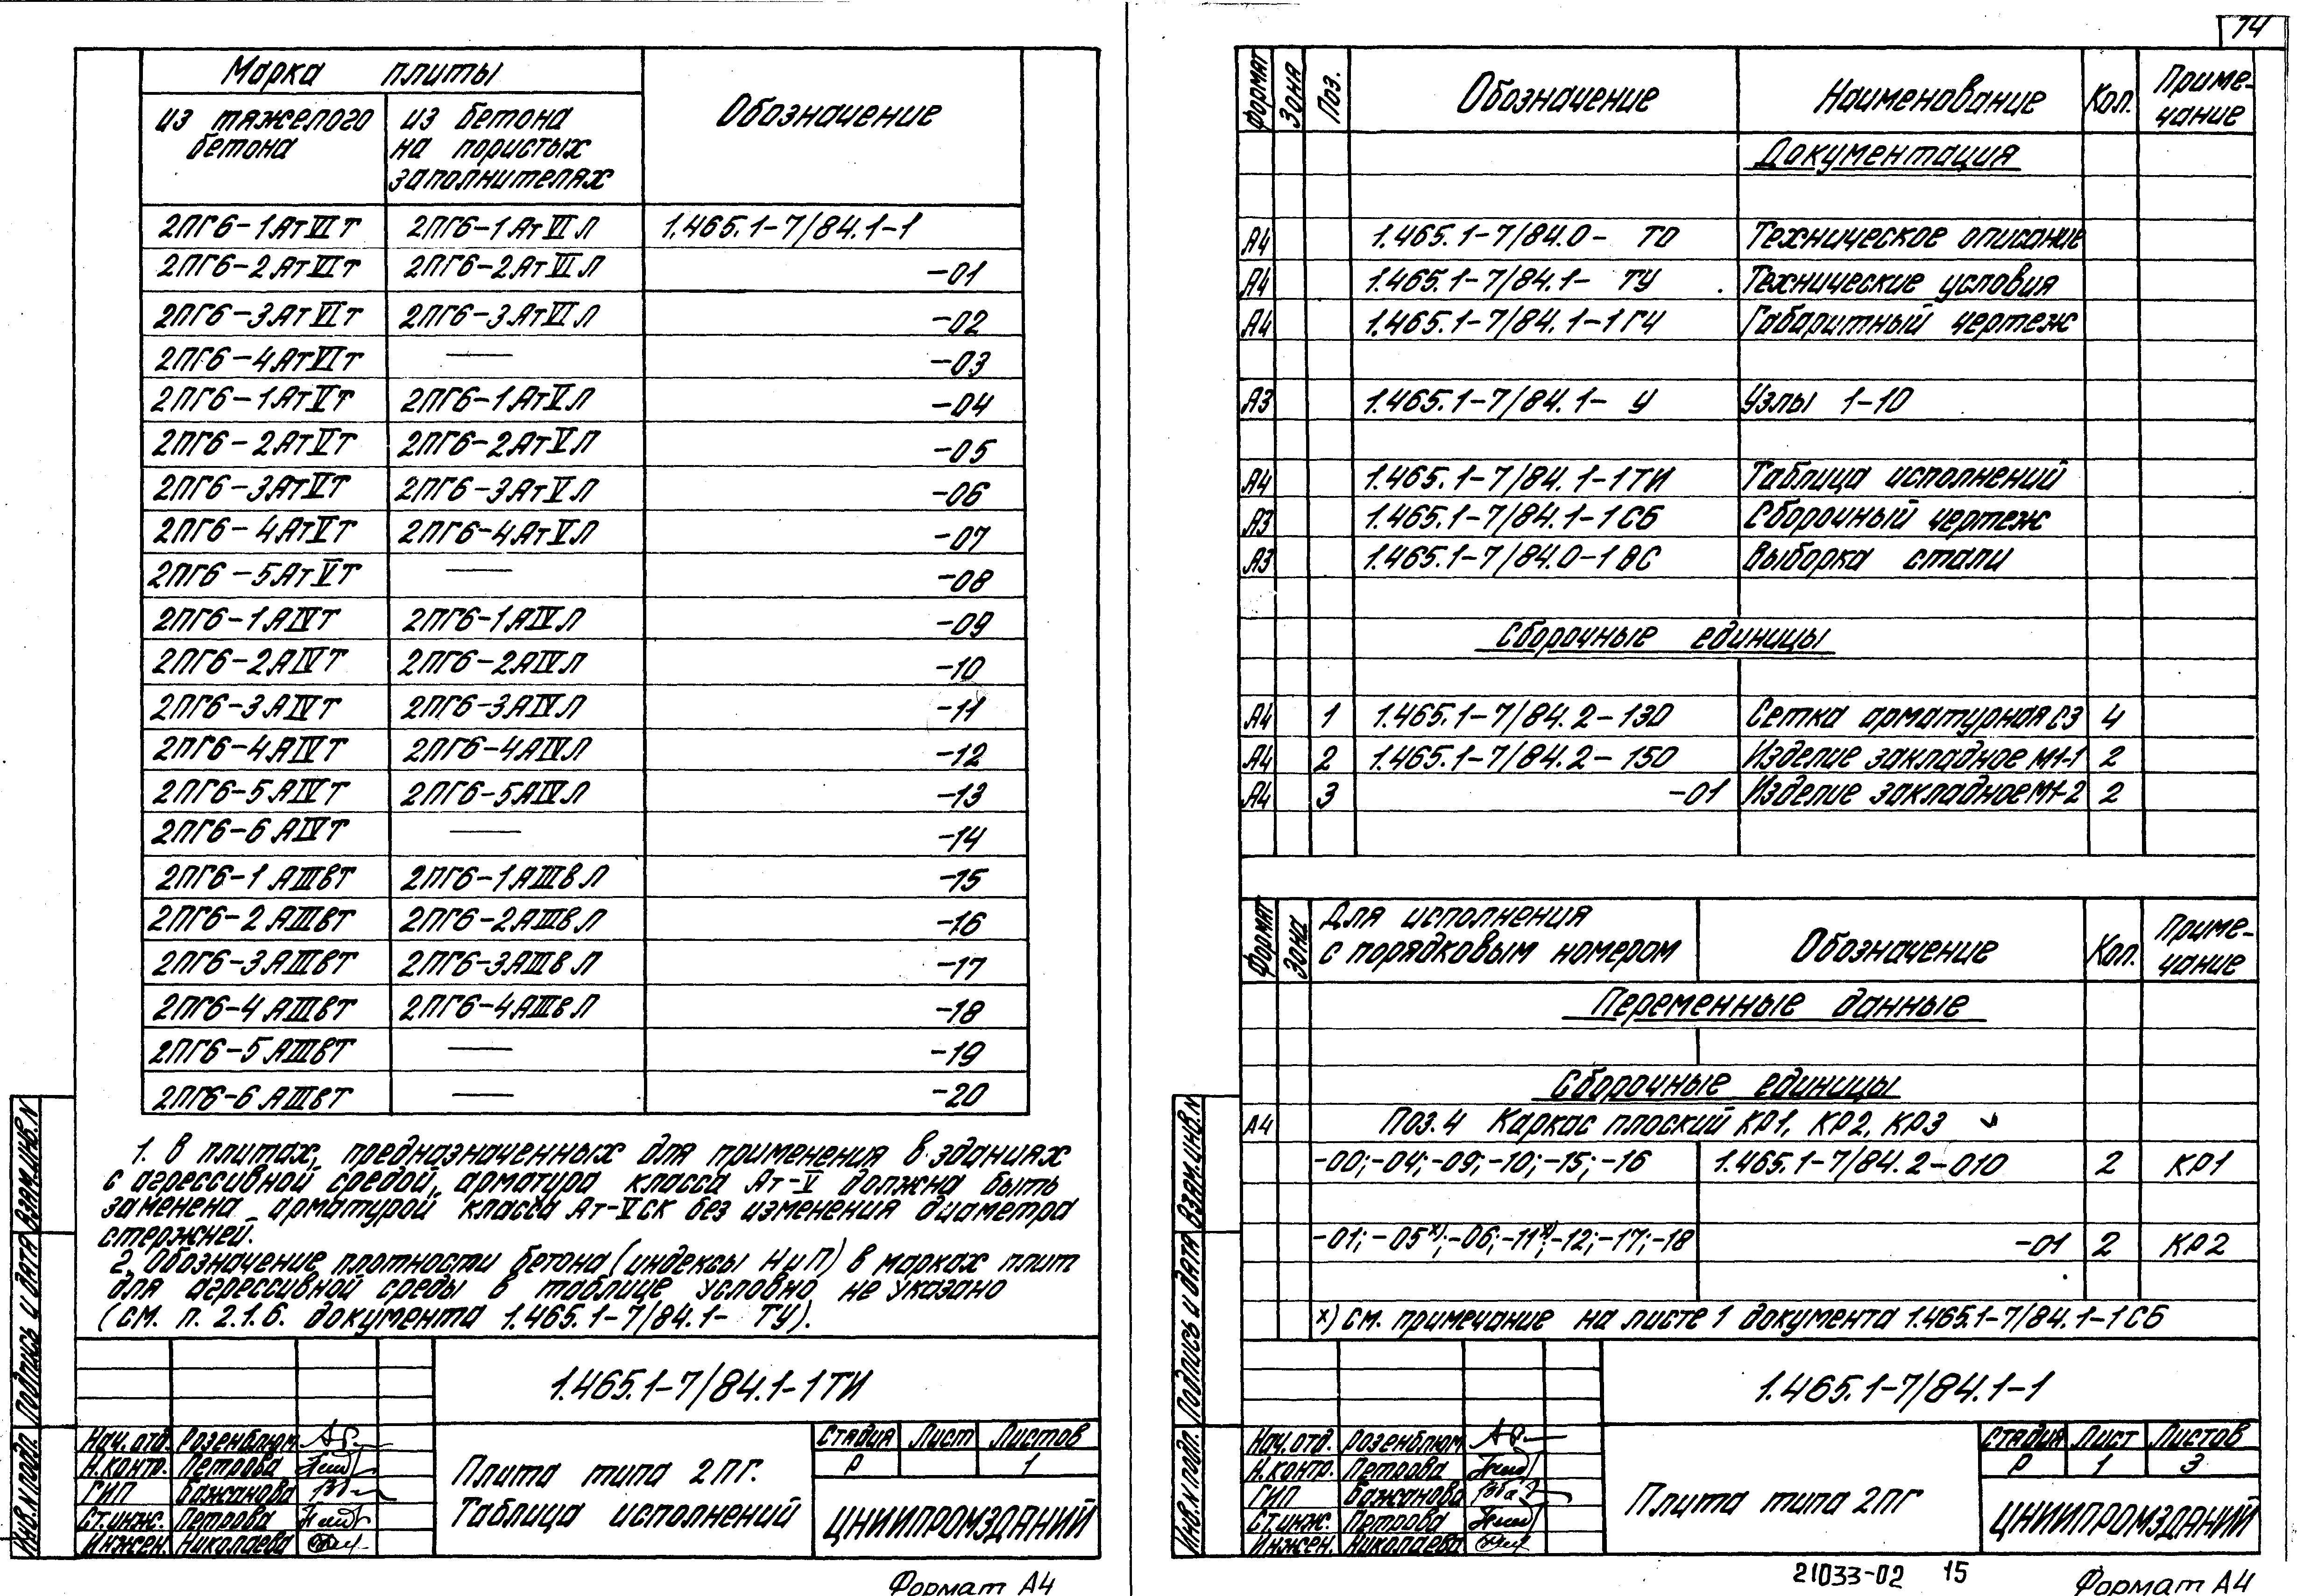 Марка плиты
из тяжелого бетона
из бетона на пористых заполнителях
Обозначение
2ПГ6-1АтVIт 2ПГ6-1АтVIП 1.465.1-7/84.1-1
2ПГ6-2АтVIт 2ПГ6-2АтVIП -01
2ПГ6-3АтVIт 2ПГ6-3АтVIП -02
2ПГ6-4АтVIт — -03
2ПГ6-1АтVт 2ПГ6-1АтVП -04
2ПГ6-2АтVт 2ПГ6-2АтVП -05
2ПГ6-3АтVт 2ПГ6-3АтVП -06
2ПГ6-4АтVт 2ПГ6-4АтVП -07
2ПГ6-5АтVт — -08
2ПГ6-1АIVт 2ПГ6-1АIVП -09
2ПГ6-2АIVт 2ПГ6-2АIVП -10
2ПГ6-3АIVт 2ПГ6-3АIVП -11
2ПГ6-4АIVт 2ПГ6-4АIVП -12
2ПГ6-5АIVт 2ПГ6-5АIVП -13
2ПГ6-6АIVт — -14
2ПГ6-1АIIIвт 2ПГ6-1АIIIвП -15
2ПГ6-2АIIIвт 2ПГ6-2АIIIвП -16
2ПГ6-3АIIIвт 2ПГ6-3АIIIвП -17
2ПГ6-4АIIIвт 2ПГ6-4АIIIвП -18
2ПГ6-5АIIIвт — -19
2ПГ6-6АIIIвт — -20
1. В плитах, предназначенных для применения в зданиях
с агрессивной средой, арматура класса Ат-V должна быть
заменена арматурой класса Ат-VСК без изменения диаметра
стержней.
2. Обозначение плотности бетона (индексы Н и П) в марках плит
для агрессивной среды в таблице условно не указано
(см. п. 2.1.6. документа 1.465.1-7/84.1- ТУ).
1.465.1-7/84.1-1ТИ
Нач.отд. Розенблюм
Н.контр. Петрова
ГИП Бажанова
Ст.инж. Петрова
Инжен. Николаева
Плита типа 2ПГ.
Таблица исполнений
Стадия Лист Листов
Р 1
ЦНИИПРОМЗДАНИЙ
Инв.N подл. Подпись и дата Взам.инв.N
Формат А4
14
Формат Зона Поз. Обозначение Наименование Кол. Приме-
чание
Документация
А4 1.465.1-7/84.0- ТО Техническое описание
А4 1.465.1-7/84.1- ТУ Технические условия
А4 1.465.1-7/84.1-1ГЧ Габаритный чертеж
А3 1.465.1-7/84.1- У Узлы 1-10
А4 1.465.1-7/84.1-1ТИ Таблица исполнений
А3 1.465.1-7/84.1-1СБ Сборочный чертеж
А3 1.465.1-7/84.0-1ВС Выборка стали
Сборочные единицы
А4 1 1.465.1-7/84.2-130 Сетка арматурная С3 4
А4 2 1.465.1-7/84.2-150 Изделие закладное М1-1 2
А4 3 -01 Изделие закладное М1-2 2
Формат Зона Для исполнения
с порядковым номером Обозначение Кол. Приме-
чание
Переменные данные
Сборочные единицы
А4 Поз.4 Каркас плоский КР1, КР2, КР3
-00;-04;-09;-10;-15;-16 1.465.1-7/84.2-010 2 КР1
-01;-05х);-06;-11х);-12;-17;-18 -01 2 КР2
х) См. примечание на листе 1 документа 1.465.1-7/84.1-1СБ
1.465.1-7/84.1-1
Нач.отд. Розенблюм
Н.контр. Петрова
ГИП Бажанова
Ст.инж. Петрова
Инжен. Николаева
Плита типа 2ПГ
Стадия Лист Листов
Р 1 3
ЦНИИПРОМЗДАНИЙ
Инв.N подл. Подпись и дата Взам.инв.N
21033-02 15
Формат А4